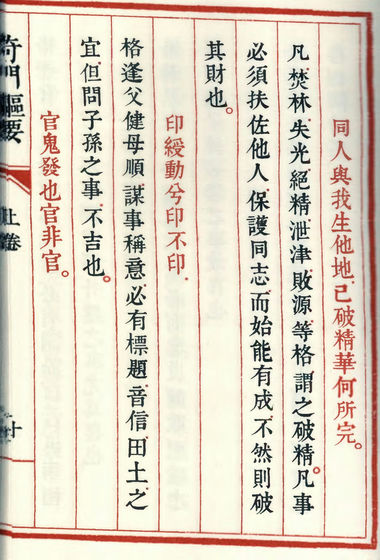 同人與我生他地已破精華何所完。
凡焚林失光絕精泄津敗源等格謂之破精。凡事
必須扶佐他人保護同志而始能有成不然則破
其財也。
印綬動兮印不印
格逢父健母順謀事稱意必有標題音信田土之
宜但問子孫之事不吉也。
官鬼發也官非官。
奇門樞要
上卷
十